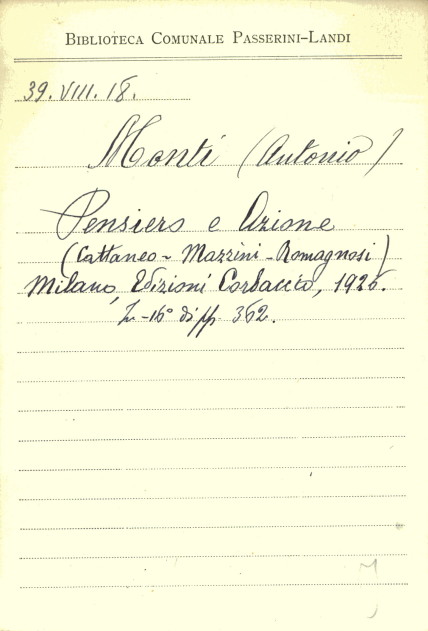 BIBLIOTECA COMUNALE PASSERINI-LANDI
39. VIII. 18.
Monti (Antonio)
Pensiero e Azione
(Cattaneo - Mazzini - Romagnosi)
Milano, Edizioni Corbaccio, 1926.
In-16° di pp. 362.